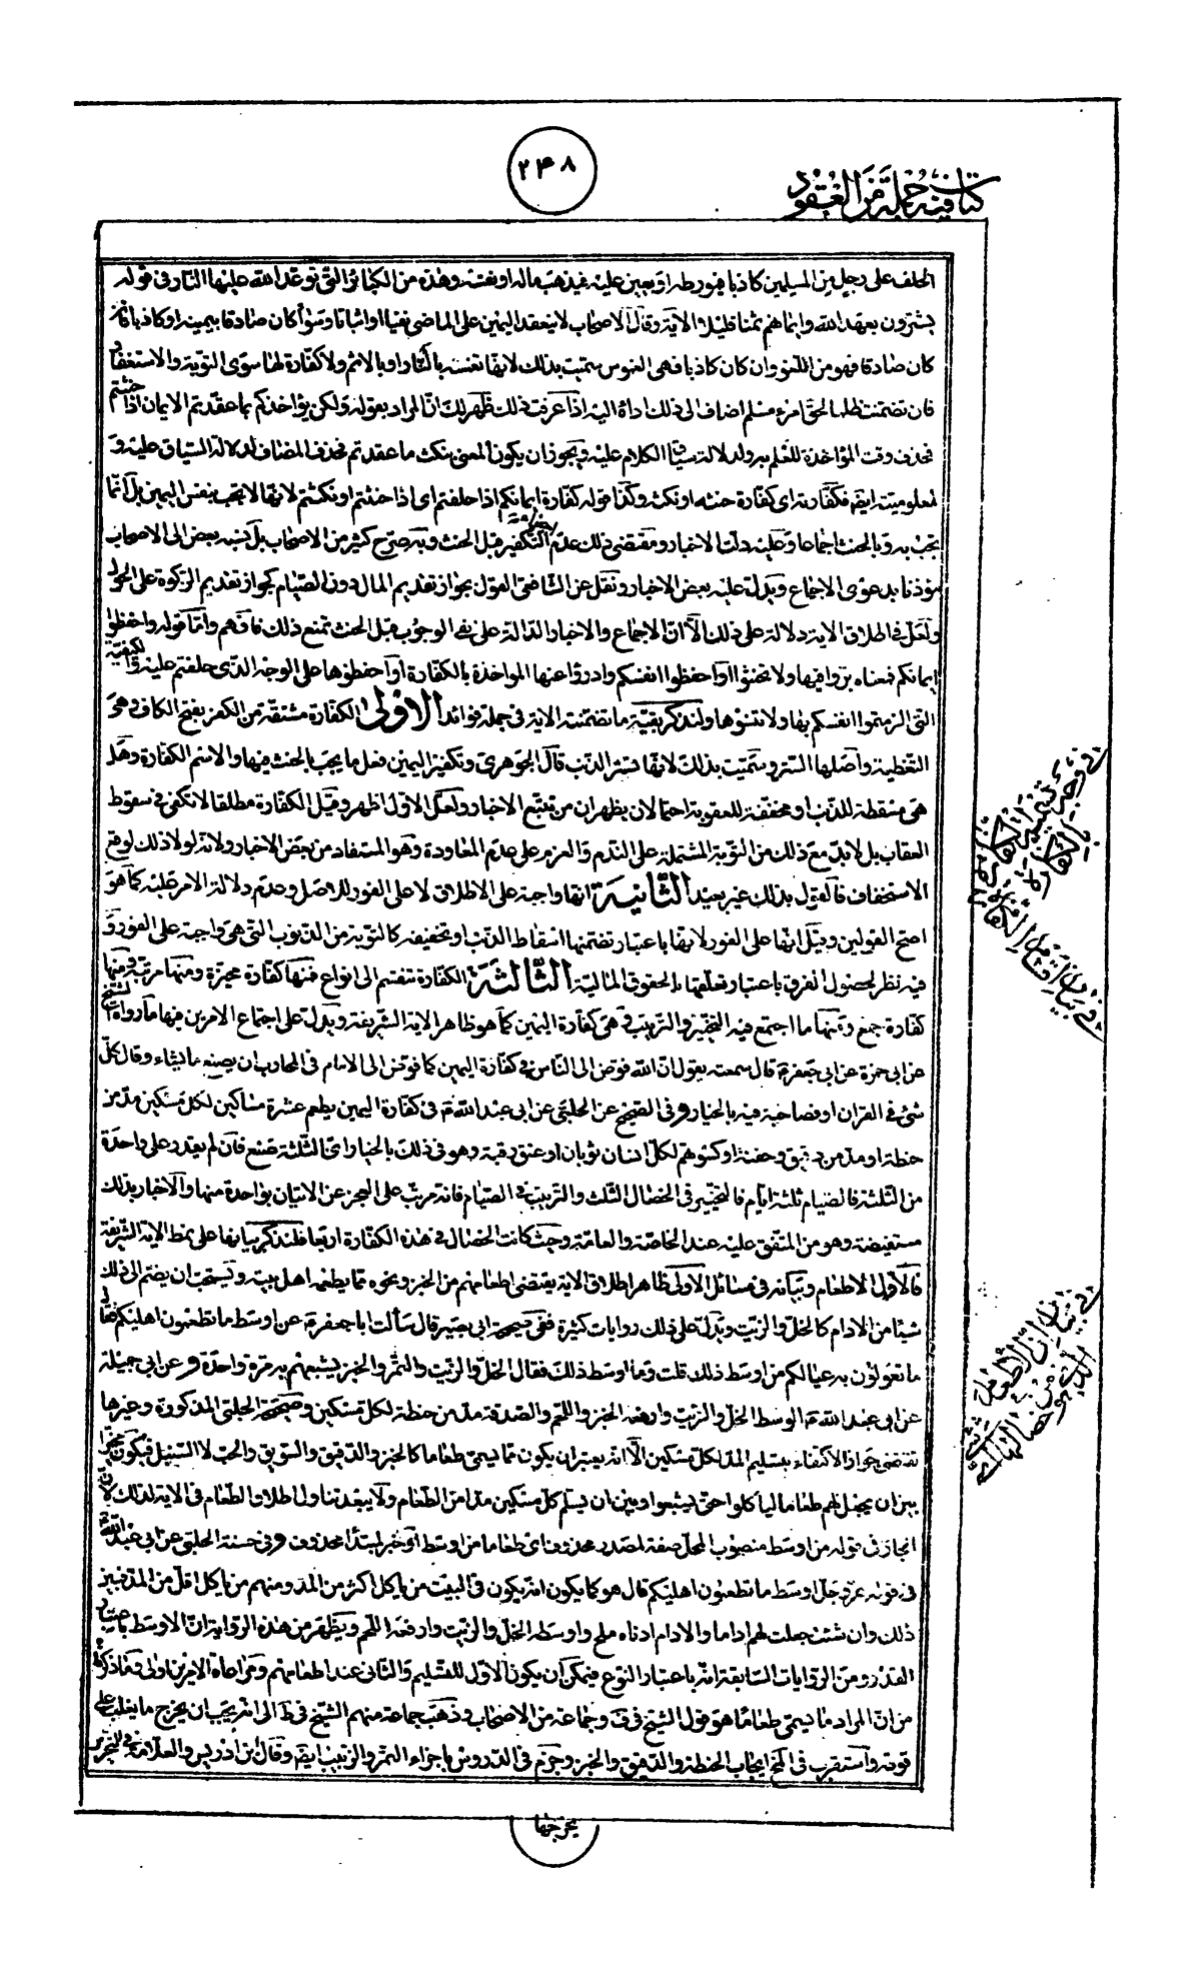 ۲۴۸
كتاب فيه جملة من العقود
الحلف على رجل من المسلمين كاذبا فيورطه او يعين عليه فيذهب ماله او نفسه وهذه من الكبائر التي توعد الله عليها النار في قوله
يشترون بعهد الله وايمانهم ثمنا قليلا الاية وقال الاصحاب لا ينعقد اليمين على الماضي نفيا او اثباتا وسواء كان صادقا بيمينه او كاذبا فان
كان صادقا فهو من اللغو وان كان كاذبا فهى الغموس سميت بذلك لانها تغمسه بالنار او بالاثم ولا كفارة لها سوى التوبة والاستغفار
فان تضمنت ظلما لحق امرء مسلم اضاف الى ذلك اداة اليه اذا عرفت ذلك ظهر لك ان المراد بقوله ولكن يؤاخذكم بما عقدتم الايمان اذا حنثتم
فحذف وقت المؤاخذة للعلم به ولدلالة سياق الكلام عليه ويجوز ان يكون المعنى بنكث ما عقدتم فحذف المضاف لدلالة السياق عليه و
لمعلوميته ايضا فكفارته اى كفارة حنثه او نكثه وكذا قوله كفارة ايمانكم اذا حلفتم اى اذا حنثتم او نكثتم لانها لا تجب بنفس اليمين بل انما
تجب به وبالحنث اجماعا وعليه دلت الاخبار ومقتضى ذلك عدم التكفير قبل الحنث وبه صرح كثير من الاصحاب بل نسبه بعض الى الاصحاب
مؤذنا بدعوى الاجماع ويدل عليه بعض الاخبار ونقل عن الشافعى القول بجواز تقديم المال دون الصيام كجواز تقديم الزكوة على الحول
ولعل في اطلاق الاية دلالة على ذلك الا ان الاجماع والاخبار الدالة على نفى الوجوب قبل الحنث تمنع ذلك فافهم واما قوله واحفظوا
ايمانكم فمعناه بروا فيها ولا تحنثوا او احفظوا انفسكم وادرؤا عنها المواخذة بالكفارة او احفظوها على الوجه الذى حلفتم عليه والكيفية
التى الزمتموا انفسكم بها ولا تنسوها ولنذكر بقية ما تضمنته الاية فى جملة فوائد الاولى الكفارة مشتقة من الكفر بفتح الكاف وهو
التغطية واصلها الستر وسميت بذلك لانها تستر الذنب قال الجوهرى وتكفير اليمين فعل ما يجب بالحنث فيها والاسم الكفارة وهل
هى مسقطة للذنب او مخففة للعقوبة احتمالان يظهران من تتبع الاخبار ولعل الاول اظهر وقيل الكفارة مطلقا لا تكفى فى سقوط
العقاب بل لا بد مع ذلك من التوبة المشتملة على الندم والعزم على عدم المعاودة وهو المستفاد من بعض الاخبار ولانه لولا ذلك لوقع
الاستخفاف فالقول بذلك غير بعيد الثانية انها واجبة على الاطلاق لا على الفور للاصل وعدم دلالة الامر عليه كما هو
اصح القولين وقيل انها على الفور لانها باعتبار تضمنها اسقاط الذنب او تخفيفه كالتوبة من الذنوب التى هى واجبة على الفور و
فيه نظر لحصول الفرق باعتبار تعلقها بالحقوق المالية الثالثة الكفارة تنقسم الى انواع فمنها كفارة مخيرة ومنها مرتبة ومنها
كفارة جمع ومنها ما اجتمع فيه التخيير والترتيب وهى كفارة اليمين كما هو ظاهر الاية الشريفة ويدل على اجتماع الامرين فيها ما رواه الشيخ
عن ابى حمزة عن ابى جعفر ع قال سمعته يقول ان الله فوض الى الناس فى كفارة اليمين كما فوض الى الامام فى المحارب ان يصنع ما يشاء وقال كل
شئ فى القران او فصاحبه فيه بالخيار وفى الصحيح عن الحلبى عن ابى عبد الله ع فى كفارة اليمين يطعم عشرة مساكين لكل مسكين مد من
حنطة او مد من دقيق وحفنة او كسوتهم لكل انسان ثوبان او عتق رقبة وهو فى ذلك بالخيار اى الثلثة صنع فان لم يقدر على واحدة
من الثلثة فالصيام ثلثة ايام فالتخيير فى الخصال الثلث والترتيب فى الصيام فانه مرتب على العجز عن الاتيان بواحدة منها والاخبار بذلك
مستفيضة وهو من المتفق عليه عند الخاصة والعامة وحيث كانت الخصال فى هذه الكفارة اربعا فلنذكر بيانها على نمط الاية الشريفة
فالاول الاطعام وبيانه فى مسائل الاولى ظاهر اطلاق الاية يقتضى اطعامهم من الخبز ونحوه مما يطعمه اهل بيته ويستحب ان يضم الى ذلك
شيئا من الادام كالخل والزيت ويدل على ذلك روايات كثيرة ففى صحيحة ابى بصير قال سألت ابا جعفر ع عن اوسط ما تطعمون اهليكم فقال
ما تعولون به عيالكم من اوسط ذلك قلت وما اوسط ذلك فقال الخل والزيت والتمر والخبز يشبعهم به مرة واحدة وعن ابى جميلة
عن ابى عبد الله ع الوسط الخل والزيت وارفعه الخبز واللحم والصدقة مد من حنطة لكل مسكين وصحيحة الحلبى المذكورة وغيرها
تقتضى جواز الاكتفاء بتسليم المد لكل مسكين الا انه يعتبر ان يكون مما يسمى طعاما كالخبز والدقيق والسويق والحب لا السنبل فيكون مخيرا
بين ان يجعل لهم طعاما ليأكلوا حتى يشبعوا وبين ان يسلم كل مسكين مدا من الطعام ولا يبعد تناول اطلاق الطعام فى الاية لذلك لان
الجار فى قوله من اوسط منصوب المحل صفة لمصدر محذوف اى طعاما من اوسط او خبر لمبتدأ محذوف وفى حسنة الحلبى عن ابى عبد الله ع
فى قوله عز وجل اوسط ما تطعمون اهليكم قال هو كما يكون انه يكون فى البيت من ياكل اكثر من المد ومنهم من ياكل اقل من المد فبين
ذلك وان شئت جعلت لهم اداما والادام ادناه ملح واوسطه الخل والزيت وارفعه اللحم ويظهر من هذه الرواية ان الاوسط باعتبار
القدر ومن الروايات السابقة انه باعتبار النوع فيمكن ان يكون الاول للتسليم والثانى عند اطعامهم ومراعاة الامرين اولى وما ذكرناه
من ان المراد ما يسمى طعاما هو قول الشيخ فى ف وجماعة من الاصحاب وذهب جماعة منهم الشيخ فى ط الى انه يجب ان يخرج ما يغلب على
قوته واستقرب فى لف ايجاب الحنطة والدقيق والخبز وجوز فى الدروس اجزاء التمر والزبيب ايضا وقال ابن ادريس والعلامة فى التحرير
يخرجها